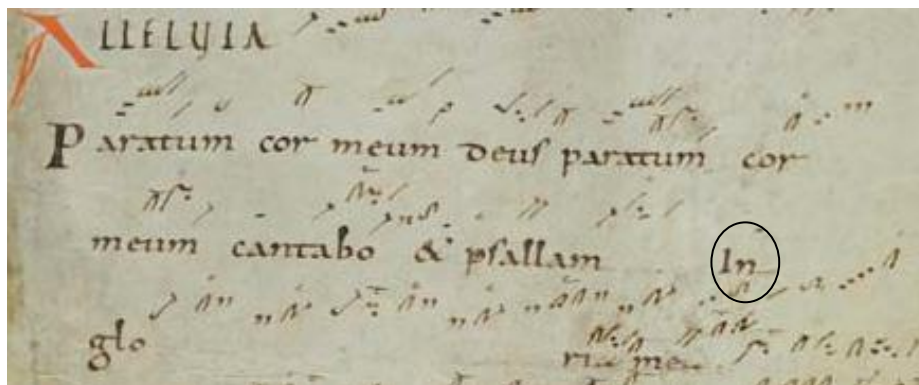 ALLELUIA
Paratum cor meum deus paratum cor
meum cantabo & psallam In
glo ria mea